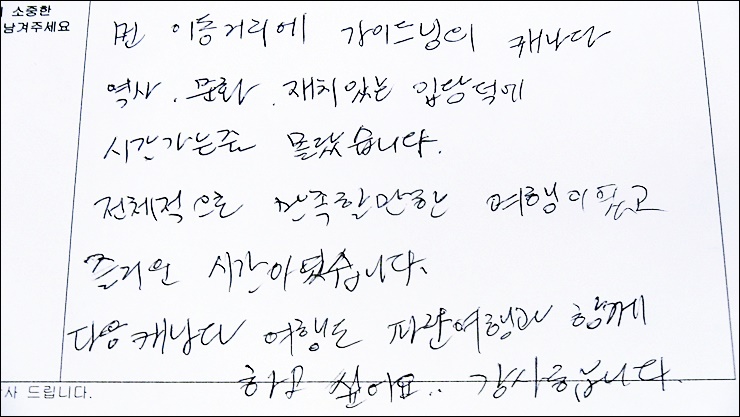 소중한
남겨주세요
먼 이동거리에 가이드님의 캐나다
역사. 문화. 재치있는 입담덕에
시간가는줄 몰랐습니다.
전체적으로 만족할만한 여행이였고
즐거운 시간이였습니다.
다음 캐나다 여행도 파란여행과 함께
하고 싶어요.. 감사합니다.
사 드립니다.